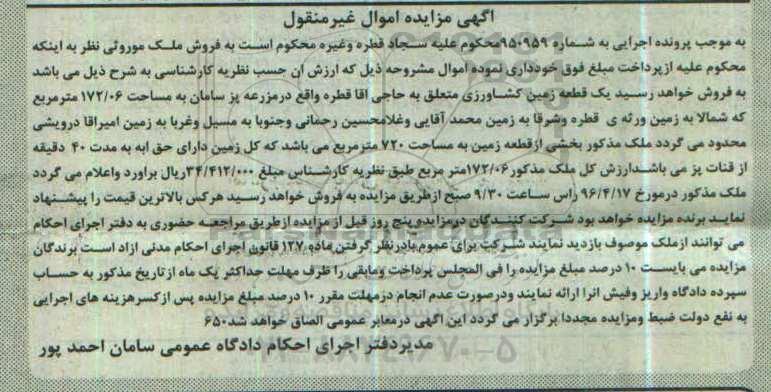 آگهی مزایده اموال غیرمنقول
به موجب پرونده اجرایی به شماره ۹۵۰۹۵۹محکوم علیه سجاد قطره وغیره محکوم است به فروش ملک موروثی نظر به اینکه
محکوم علیه ازپرداخت مبلغ فوق خودداری نموده اموال مشروحه ذیل که ارزش ان حسب نظریه کارشناسی به شرح ذیل می باشد
به فروش خواهد رسید یک قطعه زمین کشاورزی متعلق به حاجی اقا قطره واقع درمزرعه پز سامان به مساحت ۱۷۲/۰۶ مترمربع
که شمالا به زمین ورثه ی قطره وشرقا به زمین محمد آقایی وغلامحسین رحمانی وجنوبا به مسیل وغربا به زمین امیراقا درویشی
محدود می گردد ملک مذکور بخشی ازقطعه زمین به مساحت ۷۲۰ مترمربع می باشد که کل زمین دارای حق ابه به مدت ۴۰ دقیقه
از قنات پز می باشدارزش کل ملک مذکور۱۷۲/۰۶متر مربع طبق نظریه کارشناس مبلغ ۳۴/۴۱۲/۰۰۰ریال براورد واعلام می گردد
ملک مذکور درمورخ ۹۶/۴/۱۷ راس ساعت ۹/۳۰ صبح ازطریق مزایده به فروش خواهد رسید هرکس بالاترین قیمت را پیشنهاد
نماید برنده مزایده خواهد بود شرکت کنندگان درمزایده پنج روز قبل از مزایده ازطریق مراجعه حضوری به دفتر اجرای احکام
می توانند ازملک موصوف بازدید نمایند شرکت برای عموم بادرنظر گرفتن ماده ۱۲۷ قانون اجرای احکام مدنی ازاد است برندگان
مزایده می بایست ۱۰ درصد مبلغ مزایده را فی المجلس پرداخت ومابقی را ظرف مهلت حداکثر یک ماه ازتاریخ مذکور به حساب
سپرده دادگاه واریز وفیش انرا ارائه نمایند ودرصورت عدم انجام درمهلت مقرر ۱۰ درصد مبلغ مزایده پس ازکسرهزینه های اجرایی
به نفع دولت ضبط ومزایده مجددا برگزار می گردد این آگهی درمعابر عمومی الصاق خواهد شد۶۵۰
مدیردفتر اجرای احکام دادگاه عمومی سامان احمد پور